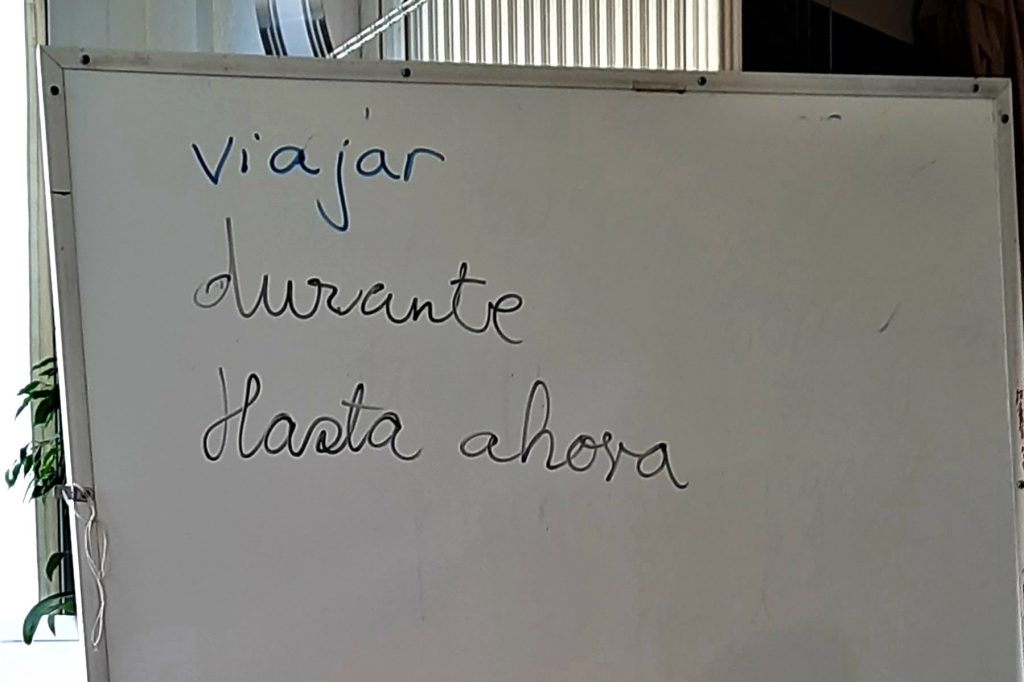 viajar
durante
Hasta ahora